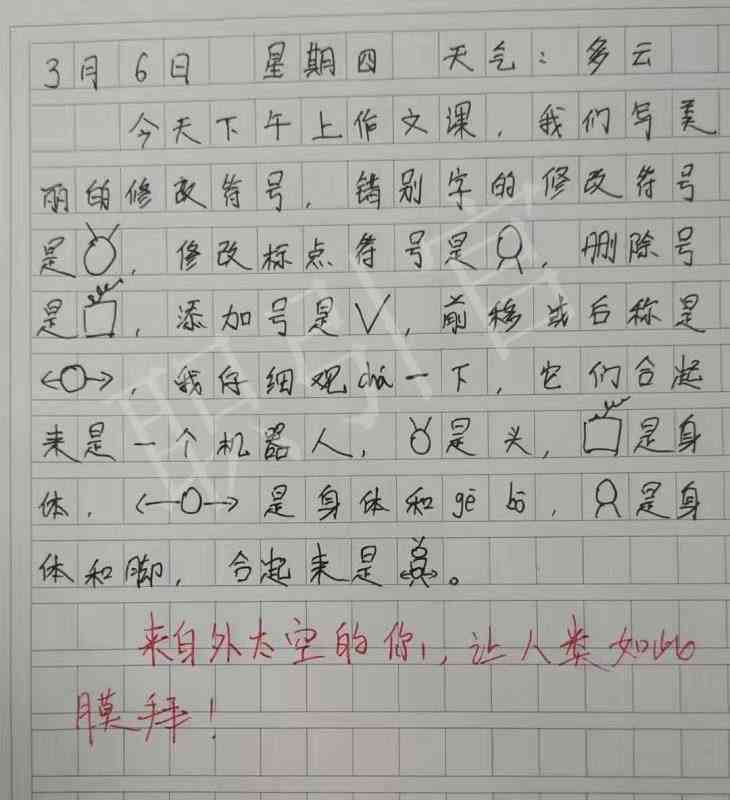 3月6日 星期四 天气：多云
今天下午上作文课，我们写美
丽的修改符号，错别字的修改符号
是，修改标点符号是，删除号
是，添加号是∨，前移或后称是
，我仔细观chá一下，它们合起
来是一个机器人，是头，是身
体，是身体和gē bō，是身
体和脚，合起来是。
来自外太空的你，让人类如此
膜拜！
职引官